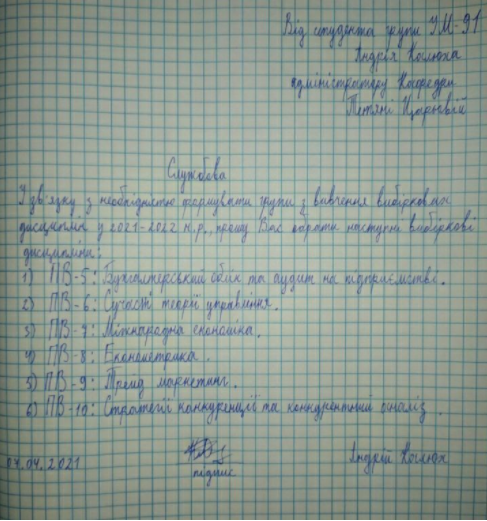 Від студента групи УМ-91
Андрія Коглюха
адміністратору Кафедри
Тетяні Царьовій
Службова
У зв'язку з необхідністю формувати групи з вивчення вибіркових
дисциплін у 2021-2022 н.р., прошу Вас обрати наступні вибіркові
дисципліни:
1) ПВ-5: Бухгалтерський облік та аудит на підприємстві.
2) ПВ-6: Сучасні теорії управління.
3) ПВ-7: Міжнародна економіка.
4) ПВ-8: Економетрика.
5) ПВ-9: Трейд маркетинг.
6) ПВ-10: Стратегії конкуренції та конкурентний аналіз.
04.04.2021 підпис Андрій Коглюх